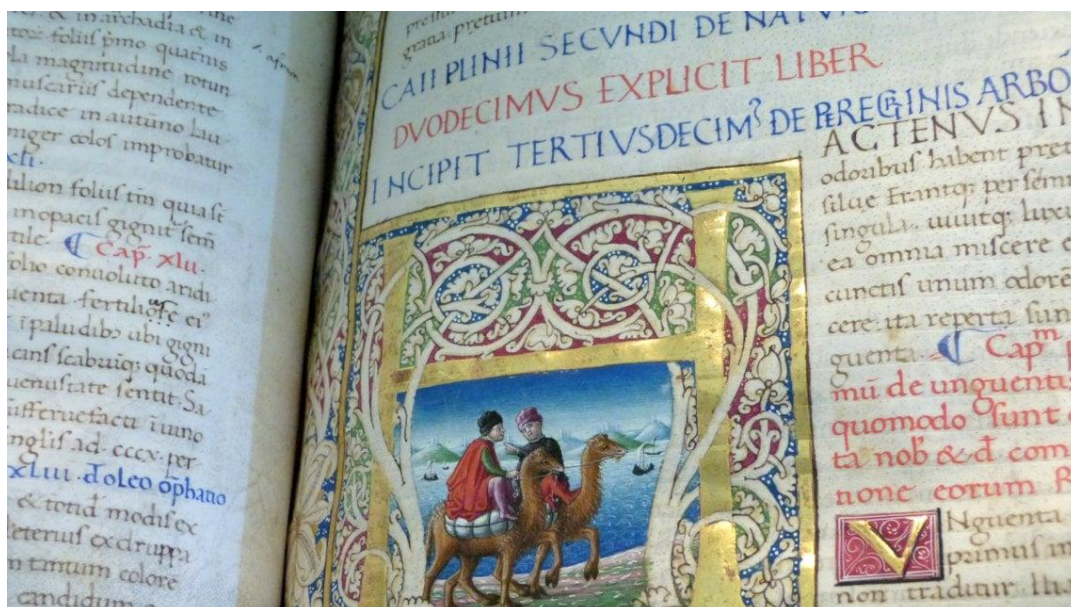 & in archadia & in
foliis p̄mo quaternis
magnitudine rotun
muscarius dependente
radice in autūno lau
niger colos improbatur
xli.
ilion foliis tm̄ quia st
inopacis gignit̄ sem̄
Cap̄ xlii.
olio conuoluto aridi
uenta fertiliore ei
ī paludibꝫ ubi gigni
cans scabuiqꝫ quoda
uenustate sentit Sa
ufferuefacti ī uino
nglis ad cccx per
XLIII d oleo ōphatio
& totid̄ modis ex
eterius ex druppa
n tantum colore
candidum
gratia pretium
CAII PLINII SECVNDI DE NATV
DVODECIMVS EXPLICIT LIBER
INCIPIT TERTIVSDECIM⁹ DE PEREGRINIS ARBO
ACTENVS IN
odoribus habent pret
silue Erantqꝫ per sem
singula uiuitqꝫ luxu
ea omnia miscere e
cunctis unum odorē
cere ita reperta sun
guenta Capᵐ p
mū de unguentis
quomodo sunt
ta nob̄ & d̄ com
tione eorum R
VNguenta
primus in
non traditur Ilia